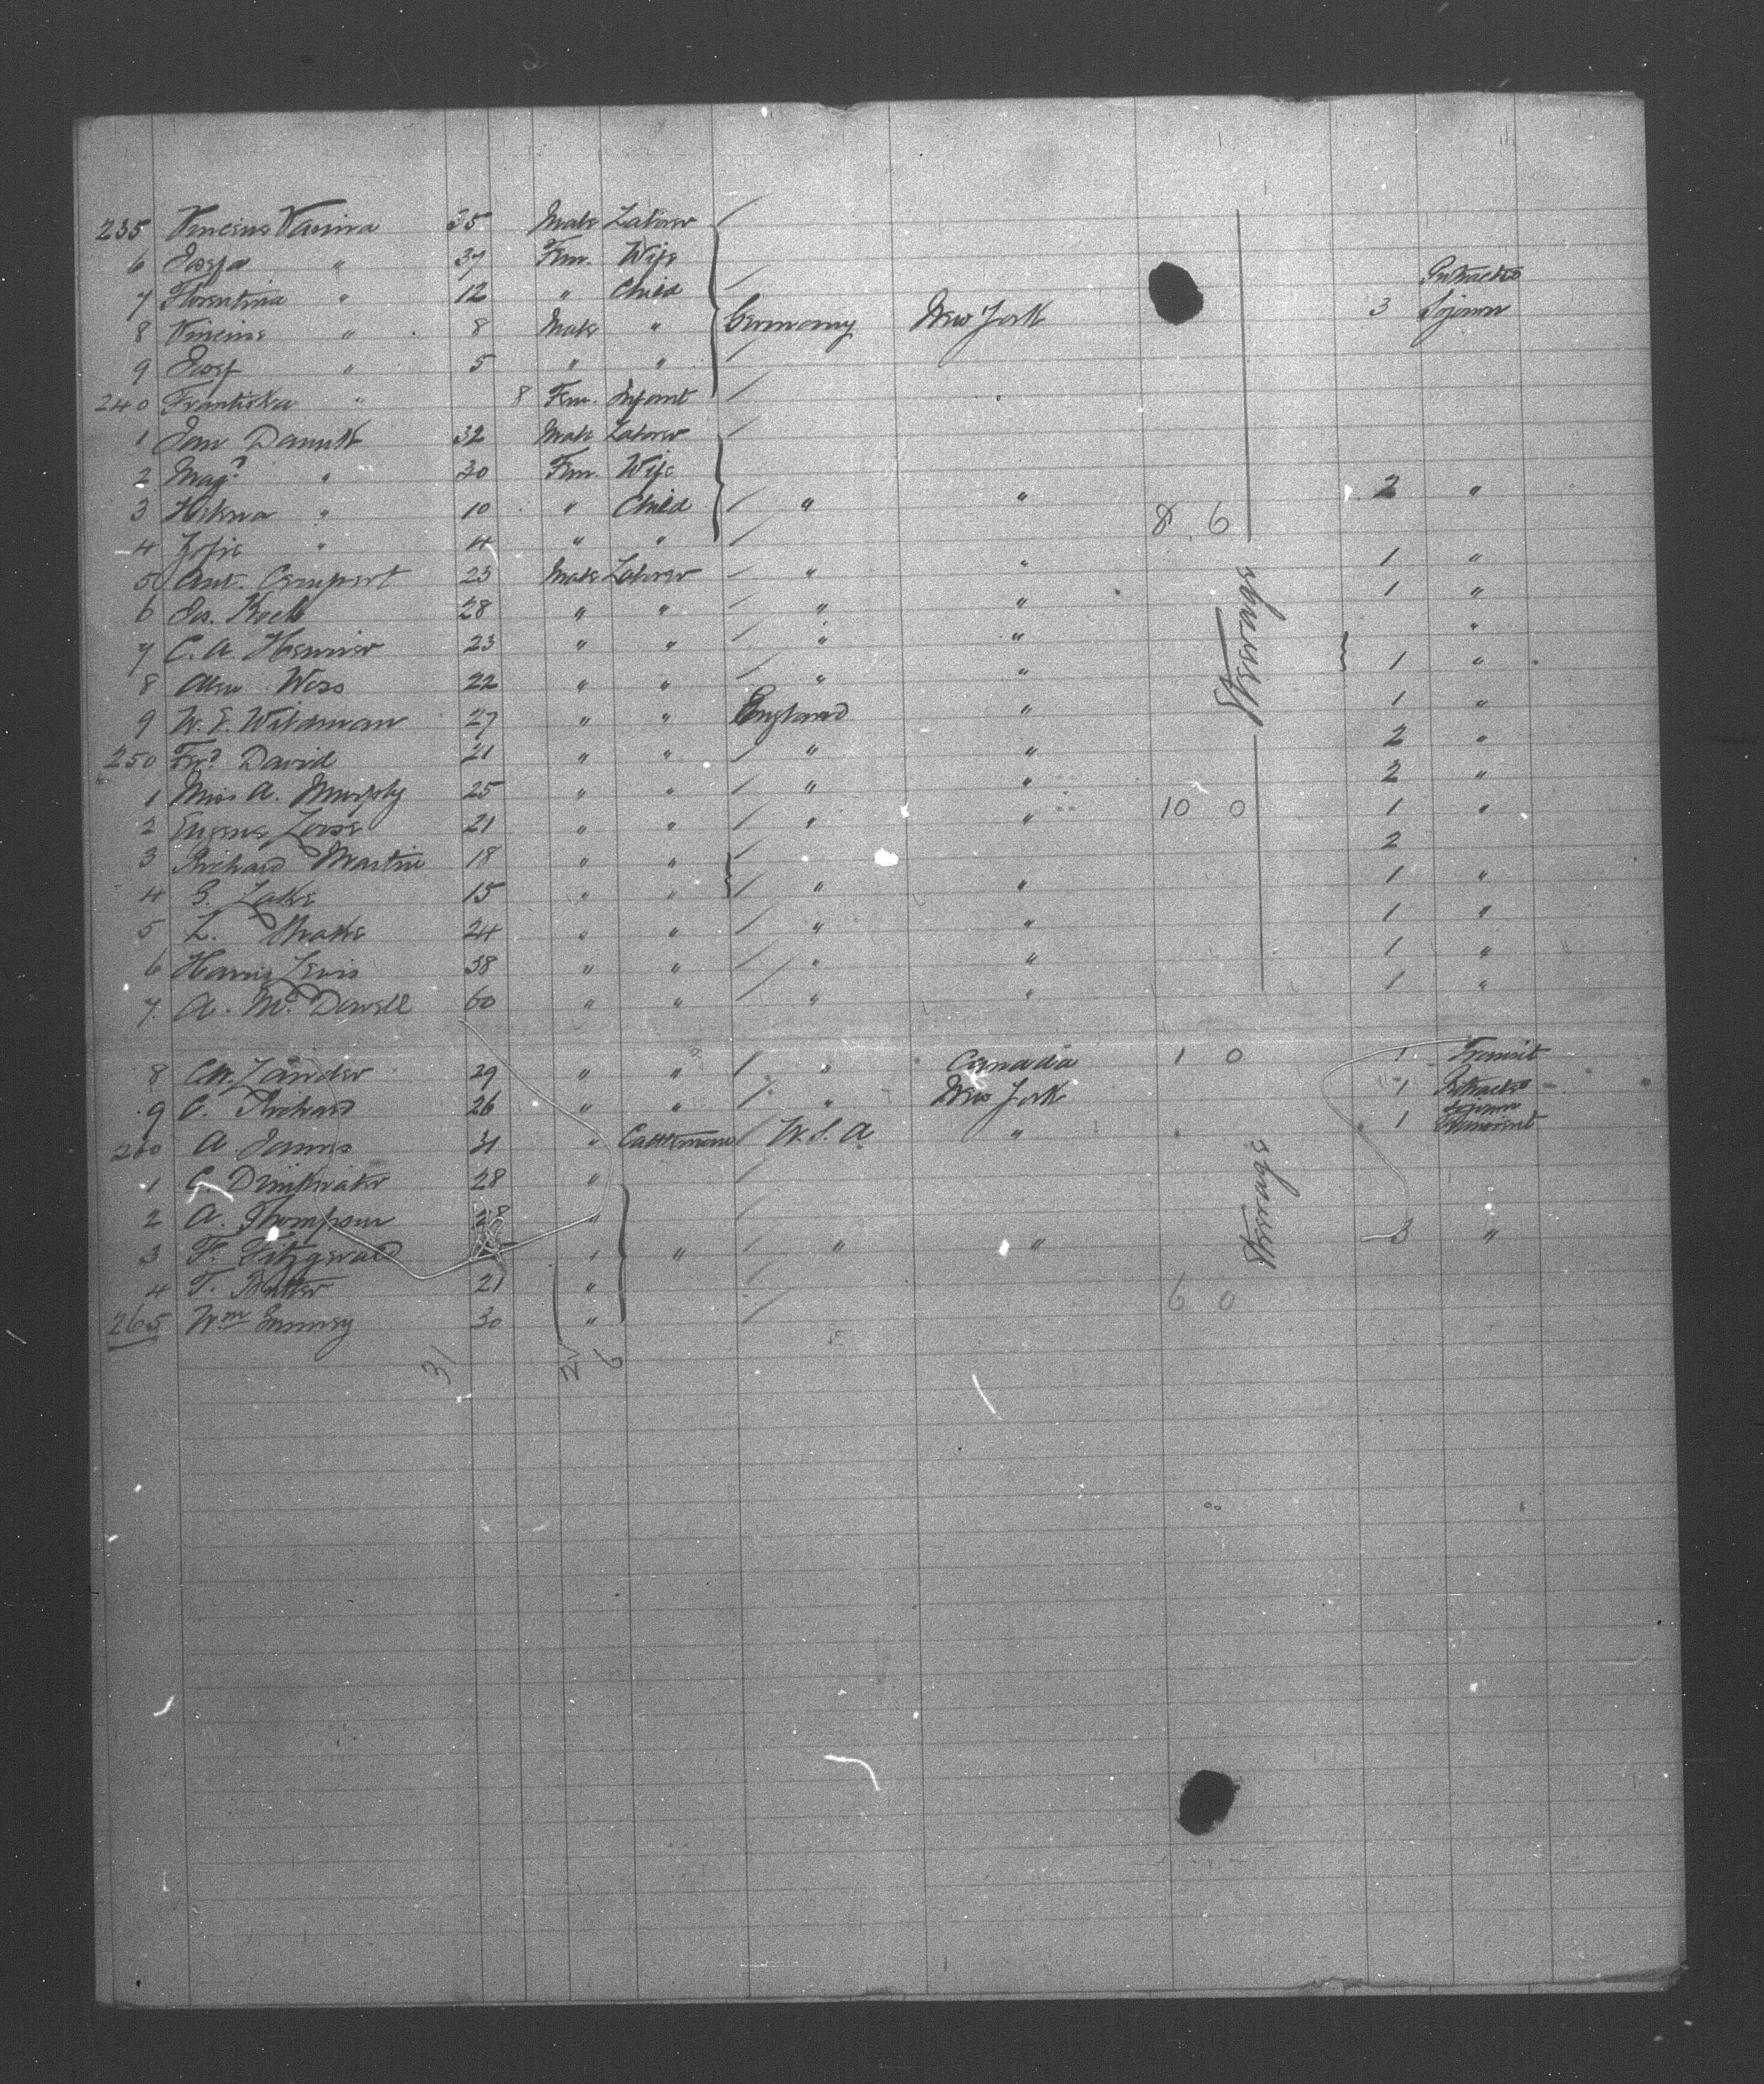 235 Vincins Vanina 35 Male Laborer
6 Josefa " 37 Fem. Wife
7 Florentina " 12 " Child Protracted
8 Vincins " 8 Male " Germany New York 3 Sojourn
9 Josef " 5 " "
240 Frantiska " 8 Fem. Infant
1 Jan Danuk 32 Male Laborer
2 Mag? " 30 Fem. Wife 2 "
3 Helena " 10 " Child " "
4 Zofie " 4 " " 8 6
5 Ant. Cempert 23 Male Laborer " " 1 "
6 Jos. Koch 28 " " " " 1 "
7 C. A. Hennier 23 " " " " "
8 Alex Wess 22 " " " " 1 "
9 W. E. Wildman 27 " " England " 1 "
250 Frs. David 21 " " " " 2 "
1 Miss A. Murphy 25 " " " " 2 "
2 Eugene Loose 21 " " " " 10 0 1 "
3 Richard Martin 18 " " 2
4 G. Lake 15 " " " " 1 "
5 L. Drake 24 " " " " 1 "
6 Harris Lewis 38 " " " " 1 "
7 A. McDowell 60 " " " " 1 "
Steerage
8 Zander 29 " " " Canada 1 0 1 Transit
9 C. Richard 26 " " " New York 1 Protracted Sojourn
260 A. James 31 " Cattlemen U. S. A " 1
1 C. Drinkwater 28 "
2 A. Thompson 28 "
3 F. Fitzgerald " " " " 3 "
4 T. Butter 21 "
265 Wm 30 " 6 0
Steerage
31 6